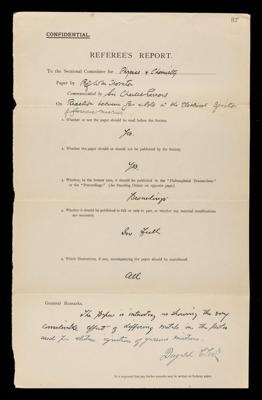 CONFIDENTIAL.
REFEREE'S REPORT.
To the Sectional Committee for Physics & Chemistry
Paper by W. M. Thornton
Communicated by Sir Charles Parsons
On Reaction between Gas & Pole in the Electrical Ignition
of Gaseous mixtures
1. Whether or not the paper should be read before the Society.
Yes.
2. Whether the paper should or should not be published by the Society.
Yes.
3. Whether, in the former case, it should be published in the "Philosophical Transactions"
or the "Proceedings" (See Standing Orders on opposite page.)
Proceedings
4. Whether it should be published in full or only in part, or whether any material modifications
are necessary.
In Full
5. Which illustrations, if any, accompanying the paper should be reproduced.
All
General Remarks.
The Paper is interesting in showing the very
considerable effect of differing metals in the poles
used for electric ignition of gaseous mixtures.
Dugald Clerk
It is requested that any further remarks may be written on foolscap paper.